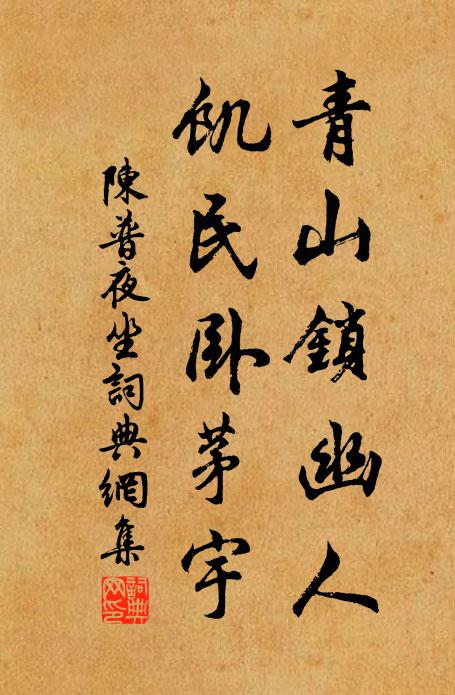 青山鎖幽人
飢民臥茅宇
陳普夜坐詞典網集
詞典网印